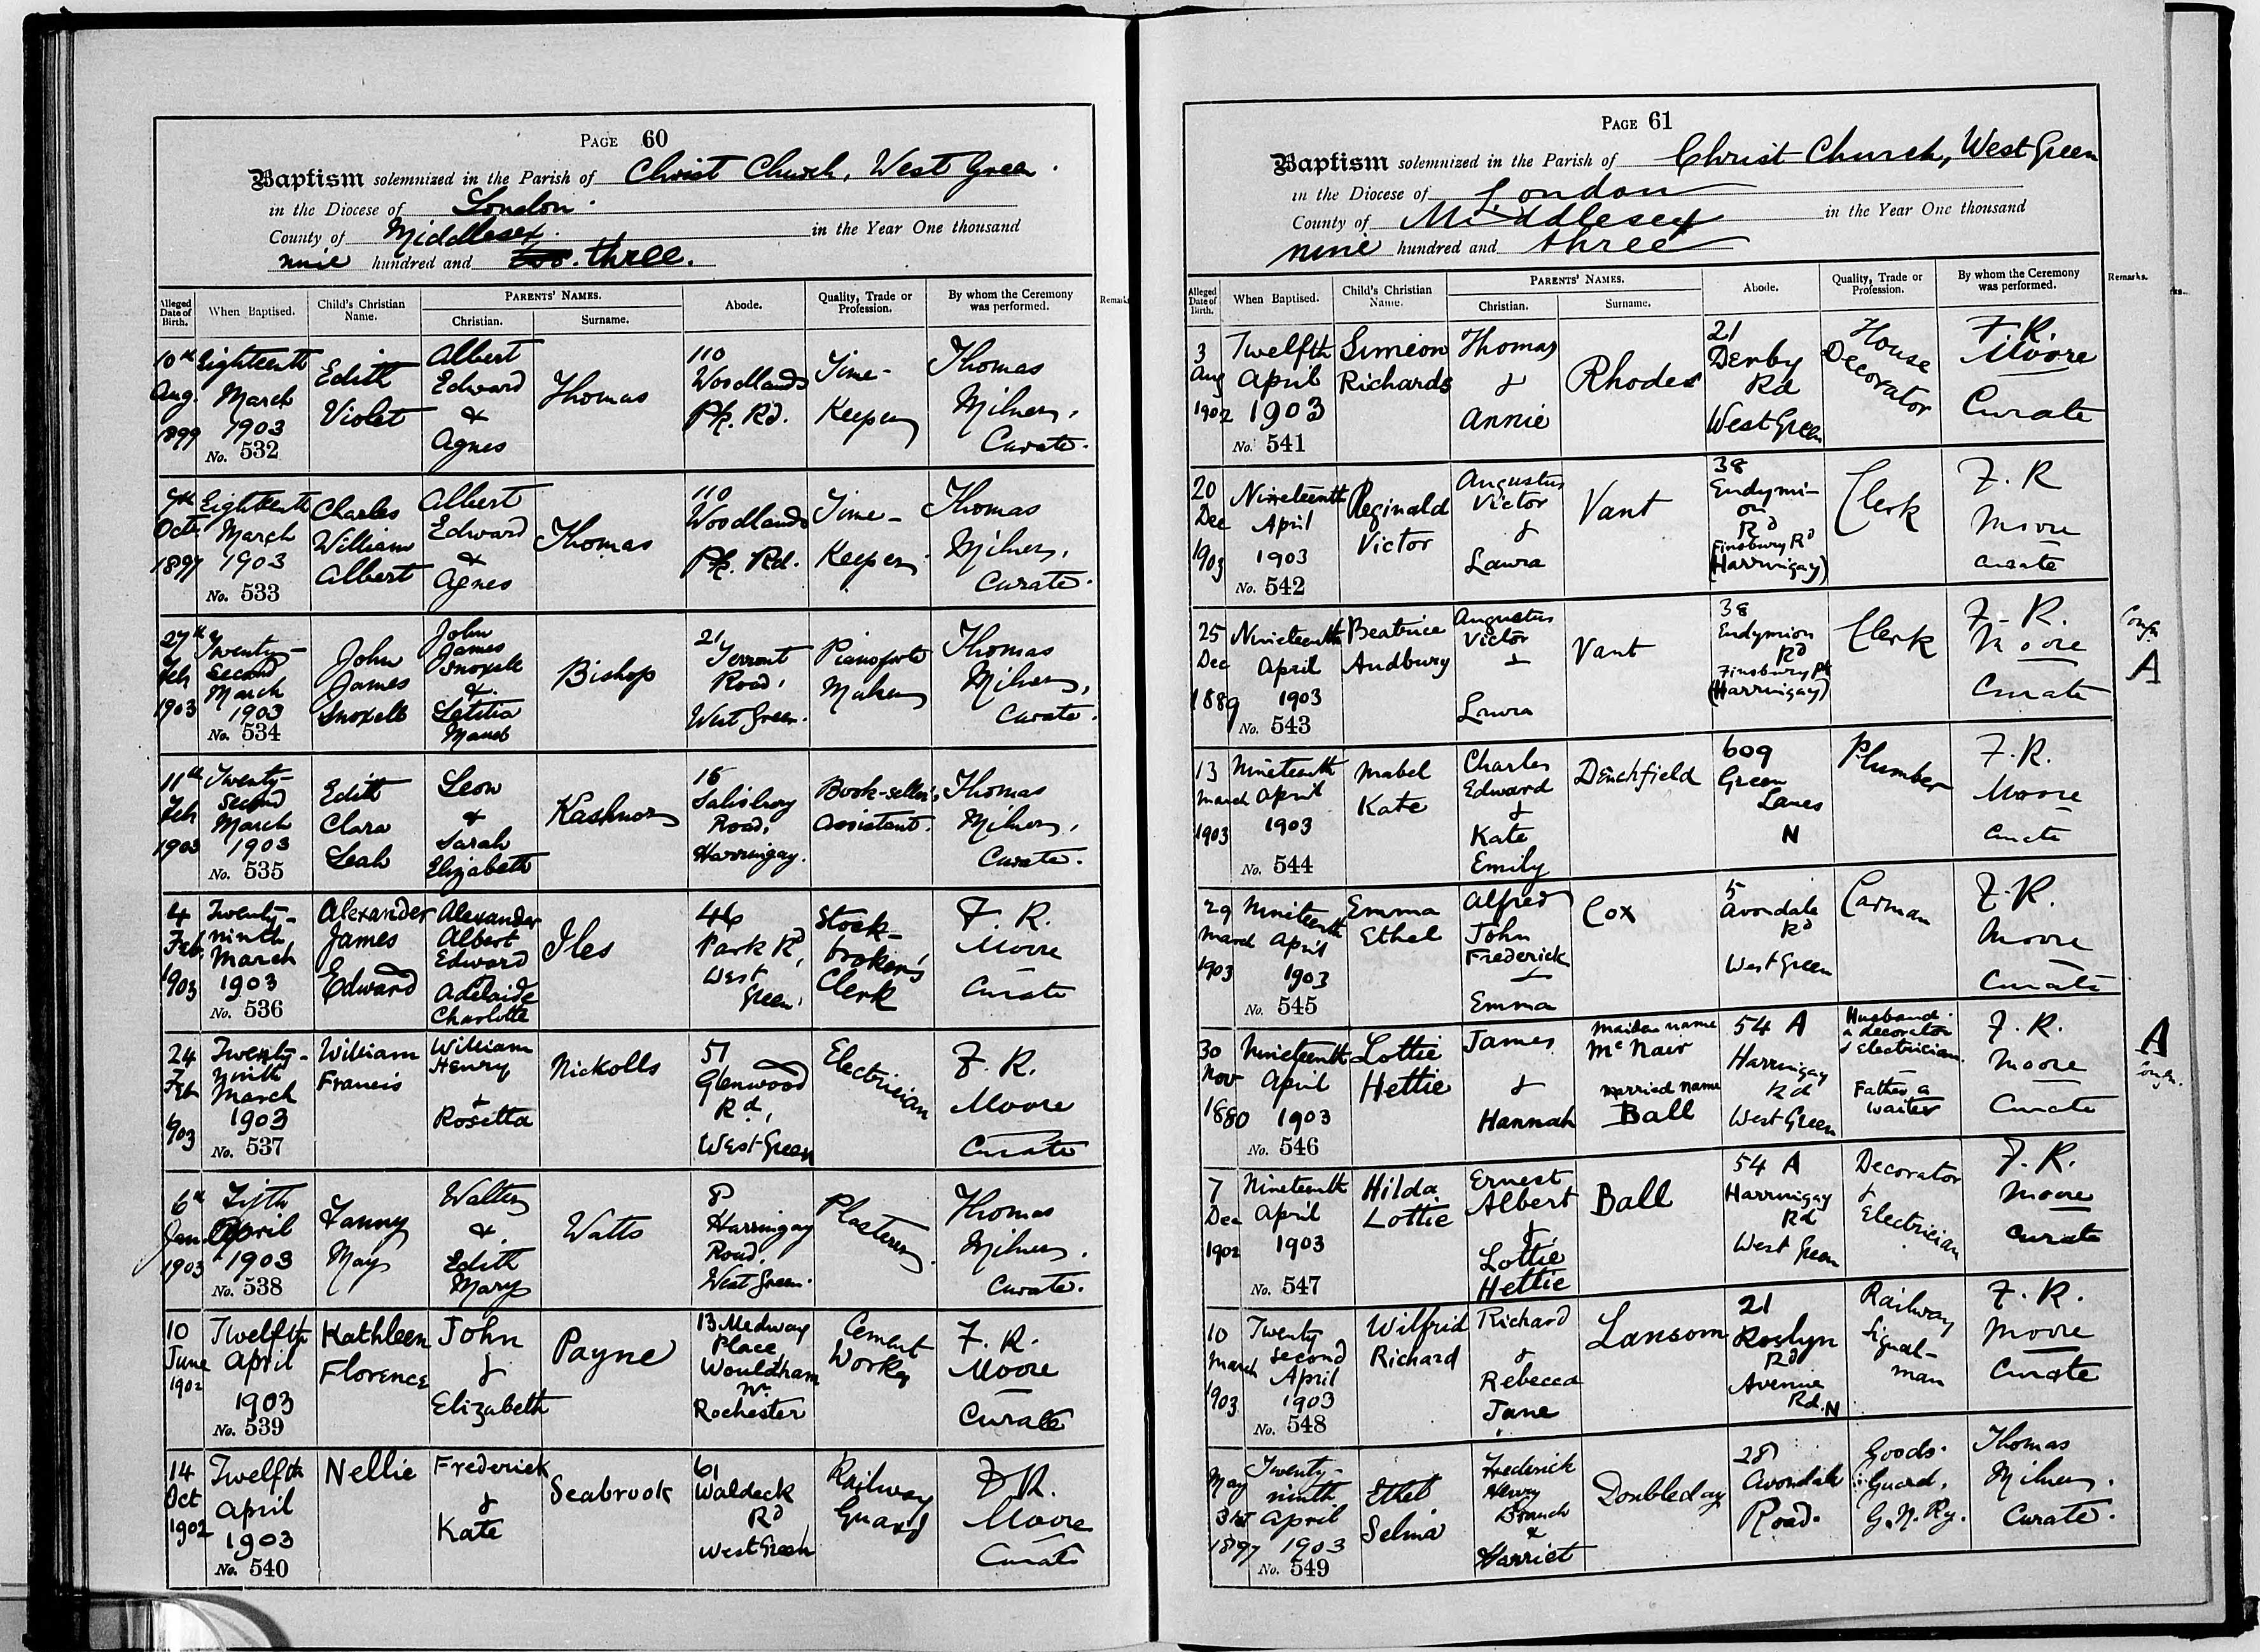 PAGE 60
Baptism solemnized in the Parish of Christ Church, West Green.
in the Diocese of London.
County of Middlesex. in the Year One thousand
nine hundred and three.
Alleged Date of Birth. When Baptised. Child's Christian Name. PARENTS' NAMES. Christian. Surname. Abode. Quality, Trade or Profession. By whom the Ceremony was performed.
10th Aug. 1899 Eighteenth March 1903 No. 532 Edith Violet Albert Edward & Agnes Thomas 110 Woodlands Pk. Rd. Time-Keeper Thomas Milner, Curate.
7th Oct. 1897 Eighteenth March 1903 No. 533 Charles William Albert Albert Edward & Agnes Thomas 110 Woodlands Pk. Rd. Time-Keeper Thomas Milner, Curate.
27th Feb 1903 Twenty-Second March 1903 No. 534 John James Snoxell John James Snoxell & Letitia Maud Bishop 21 Terront Road, West Green. Pianoforte Maker Thomas Milner, Curate.
11th Feb 1903 Twenty-second March 1903 No. 535 Edith Clara Leah Leon & Sarah Elizabeth Kashnor 15 Salisbury Road, Harringay. Book-seller's Assistant. Thomas Milner, Curate.
4 Feb. 1903 Twenty-ninth March 1903 No. 536 Alexander James Edward Alexander Albert Edward Adelaide Charlotte Iles 46 Park Rd, West Green. Stock-broker's Clerk F. R. Moore Curate
24 Feb 1903 Twenty-ninth March 1903 No. 537 William Francis William Henry & Rosetta Nickolls 51 Glenwood Rd, West Green Electrician F. R. Moore Curate
6th Jan 1903 Fifth April 1903 No. 538 Fanny May Walter & Edith Mary Watts 8 Harringay Road, West Green. Plasterer Thomas Milner. Curate.
10 June 1902 Twelfth April 1903 No. 539 Kathleen Florence John & Elizabeth Payne 13 Medway Place Wouldham Nr. Rochester Cement Worker F. R. Moore Curate
14 Oct 1902 Twelfth April 1903 No. 540 Nellie Frederick & Kate Seabrook 61 Waldeck Rd West Green Railway Guard F. R. Moore Curate
PAGE 61
Baptism solemnized in the Parish of Christ Church, West Green
in the Diocese of London
County of Middlesex in the Year One thousand
nine hundred and three
Alleged Date of Birth. When Baptised. Child's Christian Name. PARENTS' NAMES. Christian. Surname. Abode. Quality, Trade or Profession. By whom the Ceremony was performed. Remarks.
3 Aug 1902 Twelfth April 1903 No. 541 Simeon Richards Thomas & Annie Rhodes 21 Derby Rd West Green House Decorator F. R. Moore Curate
20 Dec 1903 Nineteenth April 1903 No. 542 Reginald Victor Augustus Victor & Laura Vant 38 Endymion Rd Finsbury Rd (Harringay) Clerk F. R Moore Curate
25 Dec 1889 Nineteenth April 1903 No. 543 Beatrice Audbury Augustus Victor & Laura Vant 38 Endymion Rd Finsbury Pk (Harringay) Clerk F. R. Moore Curate A
13 March 1903 Nineteenth April 1903 No. 544 Mabel Kate Charles Edward & Kate Emily Denchfield 609 Green Lanes N Plumber F. R. Moore Curate
29 March 1903 Nineteenth April 1903 No. 545 Emma Ethel Alfred John Frederick & Emma Cox 5 Avondale Rd West Green Carman F. R. Moore Curate
30 Nov 1880 Nineteenth April 1903 No. 546 Lottie Hettie James & Hannah Maiden name McNair Married name Ball 54 A Harringay Rd West Green Husband a decorator & Electrician. Father a waiter F. R. Moore Curate A
7 Dec 1902 Nineteenth April 1903 No. 547 Hilda Lottie Ernest Albert & Lottie Hettie Ball 54 A Harringay Rd West Green Decorator & Electrician F. R. Moore Curate
10 March 1903 Twenty second April 1903 No. 548 Wilfrid Richard Richard & Rebecca Jane Lansom 21 Roslyn Rd Avenue Rd. N Railway Signal-man F. R. Moore Curate
May 31st 1897 Twenty-ninth April 1903 No. 549 Ethel Selina Frederick Henry Branch & Harriet Doubleday 28 Avondale Road. Goods Guard, G. N. Ry. Thomas Milner. Curate.